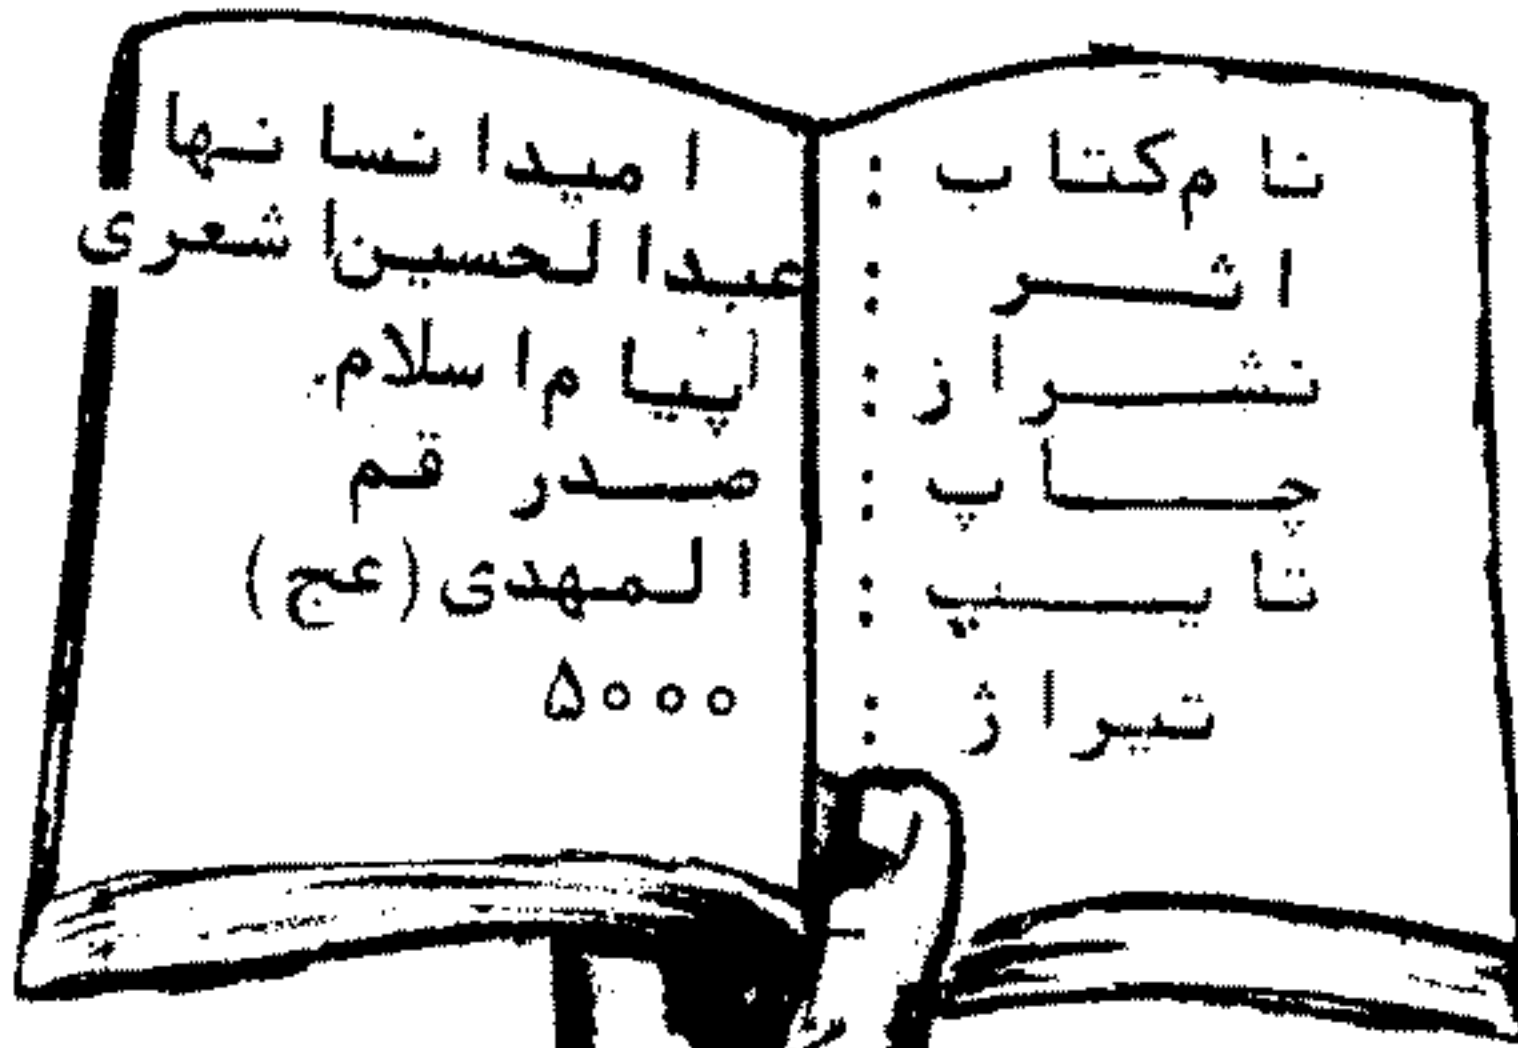 نام کتاب : امید انسانها
اثر : عبدالحسین اشعری
نشر از : پیام اسلام.
چاپ : صدر قم
تایپ : المهدی (عج)
تیراژ : ۵۰۰۰